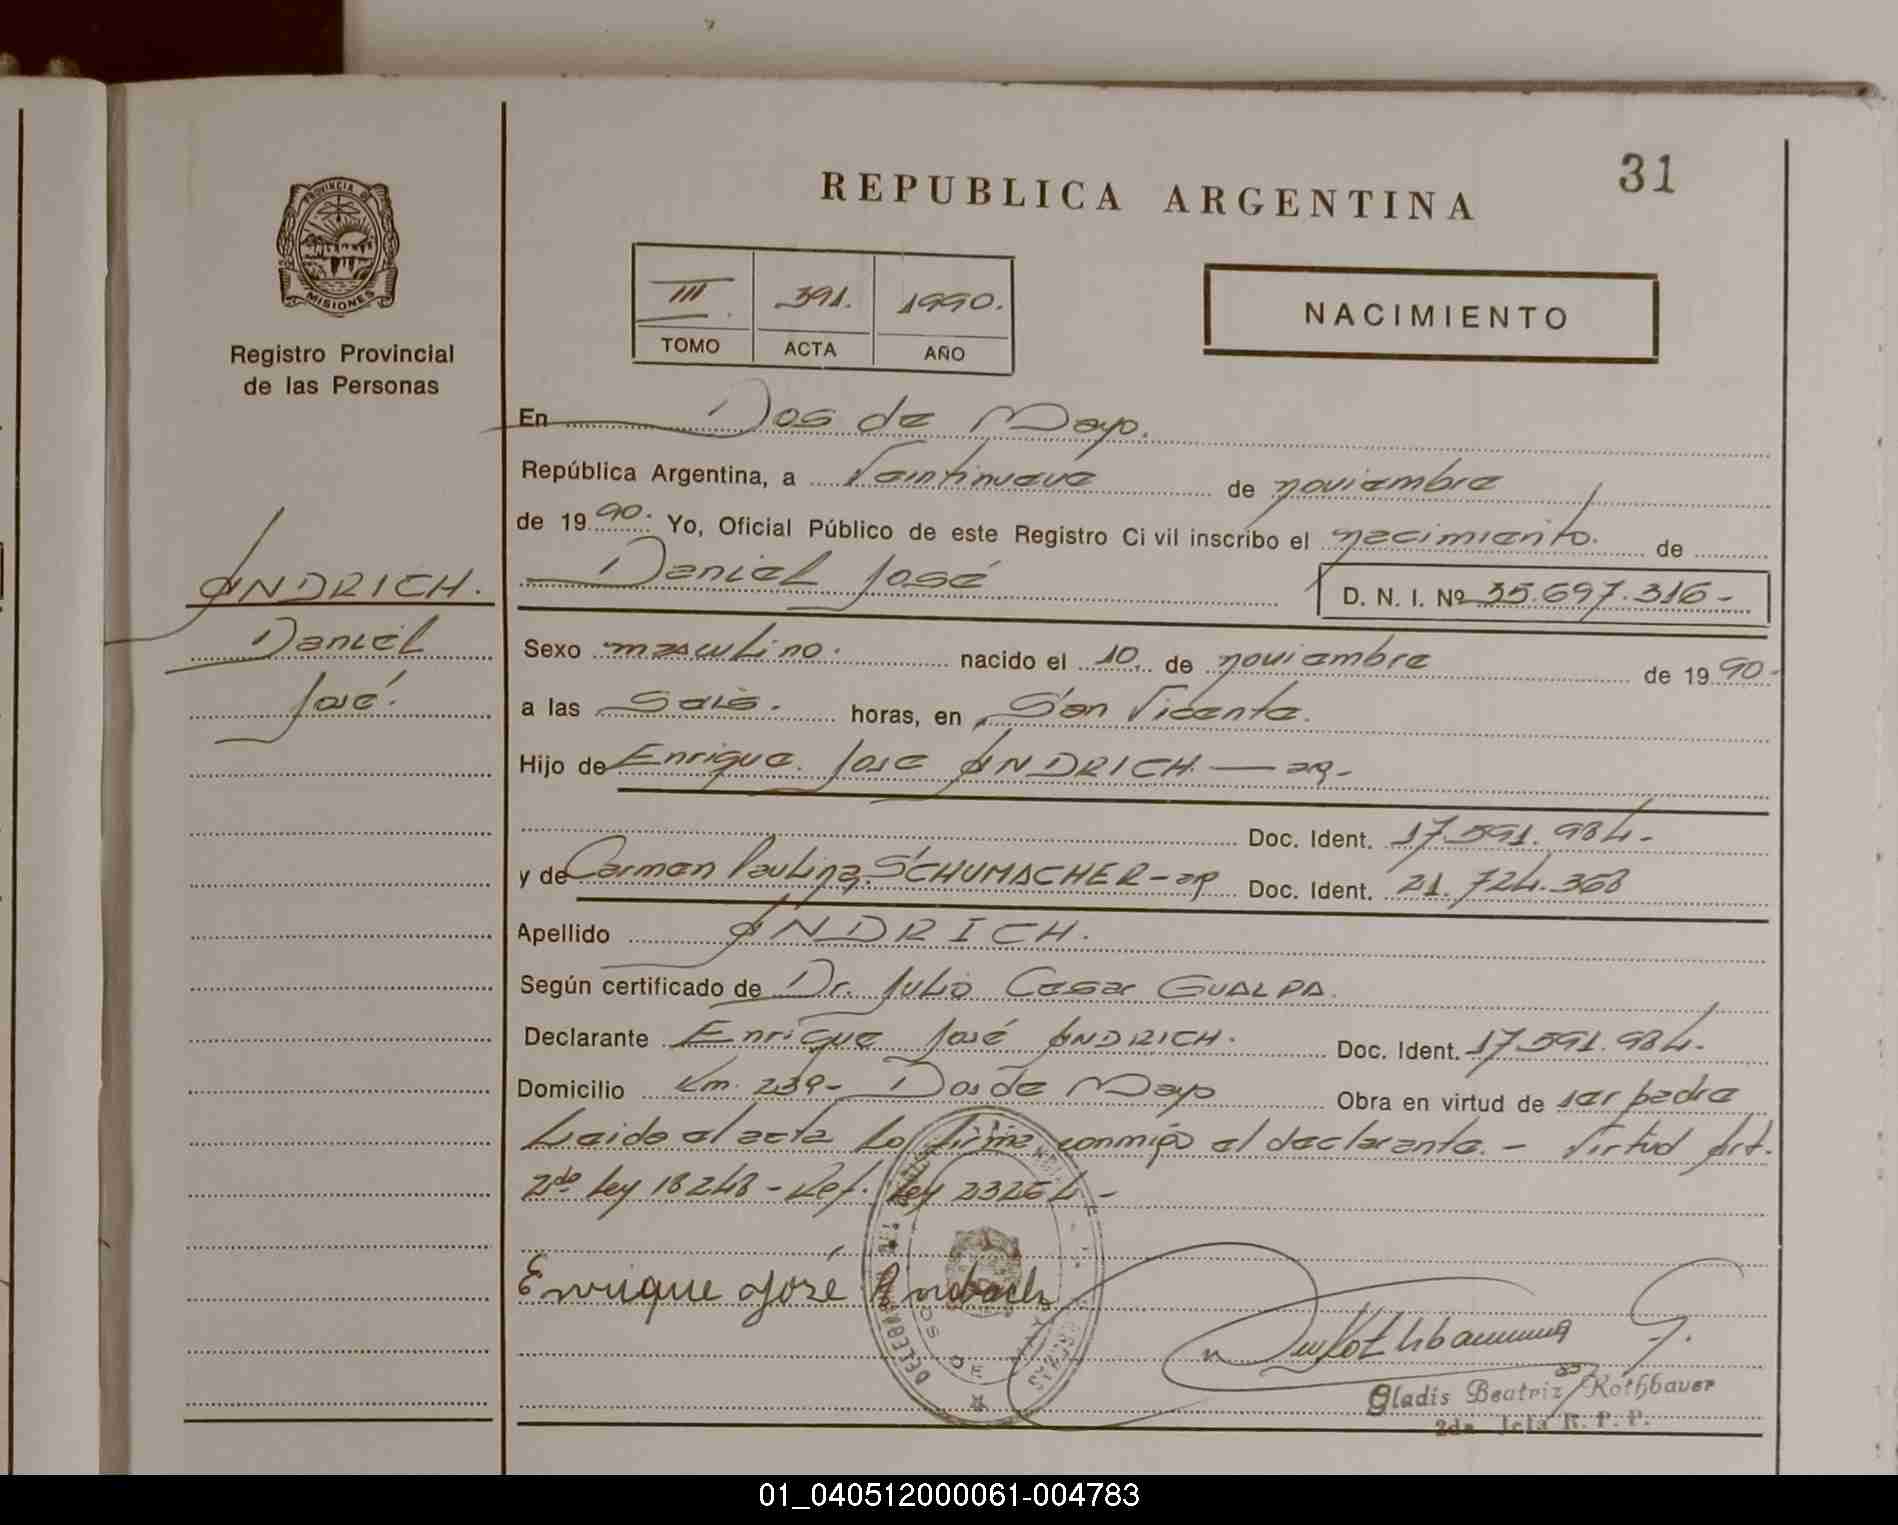 31
REPUBLICA ARGENTINA
PROVINCIA DE
MISIONES
Registro Provincial
de las Personas
III 391. 1990.
TOMO ACTA AÑO
NACIMIENTO
ANDRICH.
Daniel
José.
En Dos de Mayo.
República Argentina, a Veintinueve de noviembre
de 1990. Yo, Oficial Público de este Registro Civil inscribo el nacimiento. de
Daniel José D. N. I. Nº 35.697.316-
Sexo masculino. nacido el 10. de noviembre de 1990.-
a las Seis. horas, en San Vicente.
Hijo de Enrique José ANDRICH. — ar-
Doc. Ident. 17.591.984-
y de Carmen Paulina SCHUMACHER - ar Doc. Ident. 21.724.368
Apellido ANDRICH.
Según certificado de Dr. Julio Cesar GUALPA.
Declarante Enrique José ANDRICH. Doc. Ident. 17.591.984.-
Domicilio Km. 239- Dos de Mayo Obra en virtud de ser padre
Leida el acta lo firma conmigo el declarante. - Virtud Art.
2do Ley 18248 - Ref. Ley 23264 -
Enrique José Andrich
Gladis Beatriz Rothbauer
2da Jefa R. P. P.
01_040512000061-004783